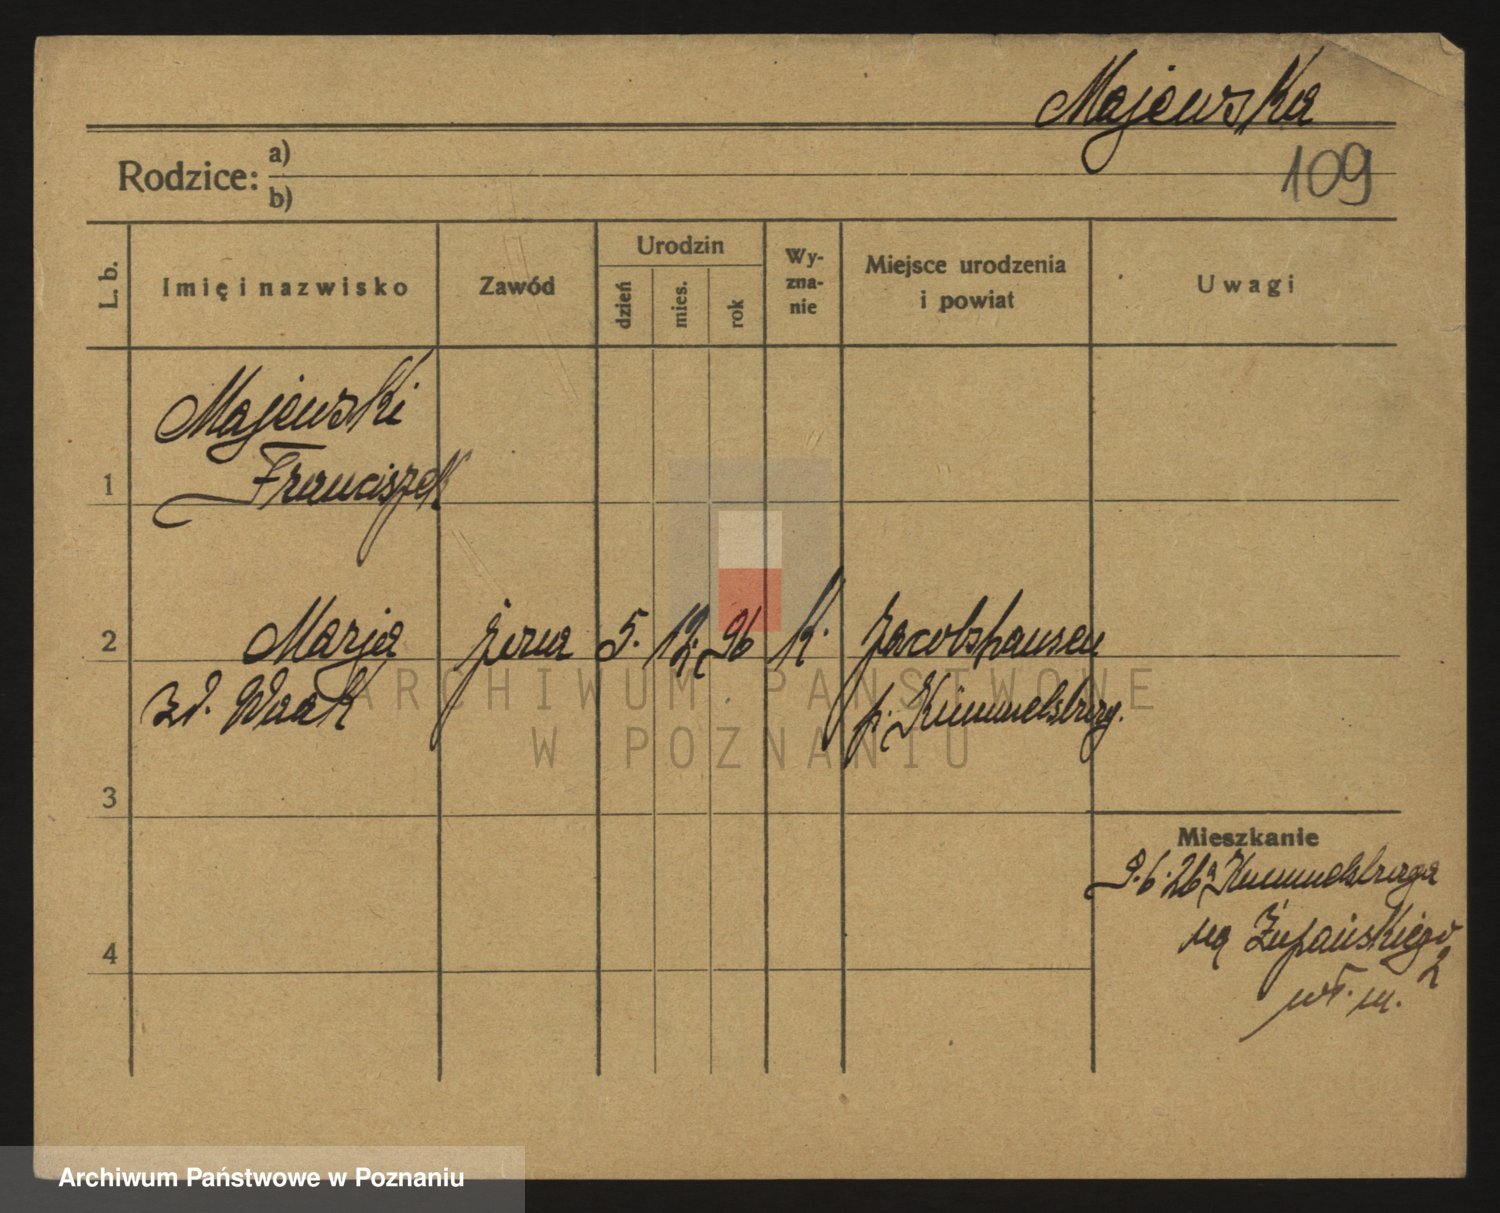 Majewska
109
Rodzice: a)
b)
L. b.
Imię i nazwisko
Zawód
Urodzin
dzień
mies.
rok
Wy-
zna-
nie
Miejsce urodzenia
i powiat
Uwagi
Majewski
1 Franciszek
2 Marja żona 5. 12. 96 k. Jacobshausen
zd. Waak p. Kümmelsburg.
3
Mieszkanie
9.6.26 Kummelsburga
na Żupańskiego
2
wł. m.
4
ARCHIWUM PAŃSTWOWE
W POZNANIU
Archiwum Państwowe w Poznaniu